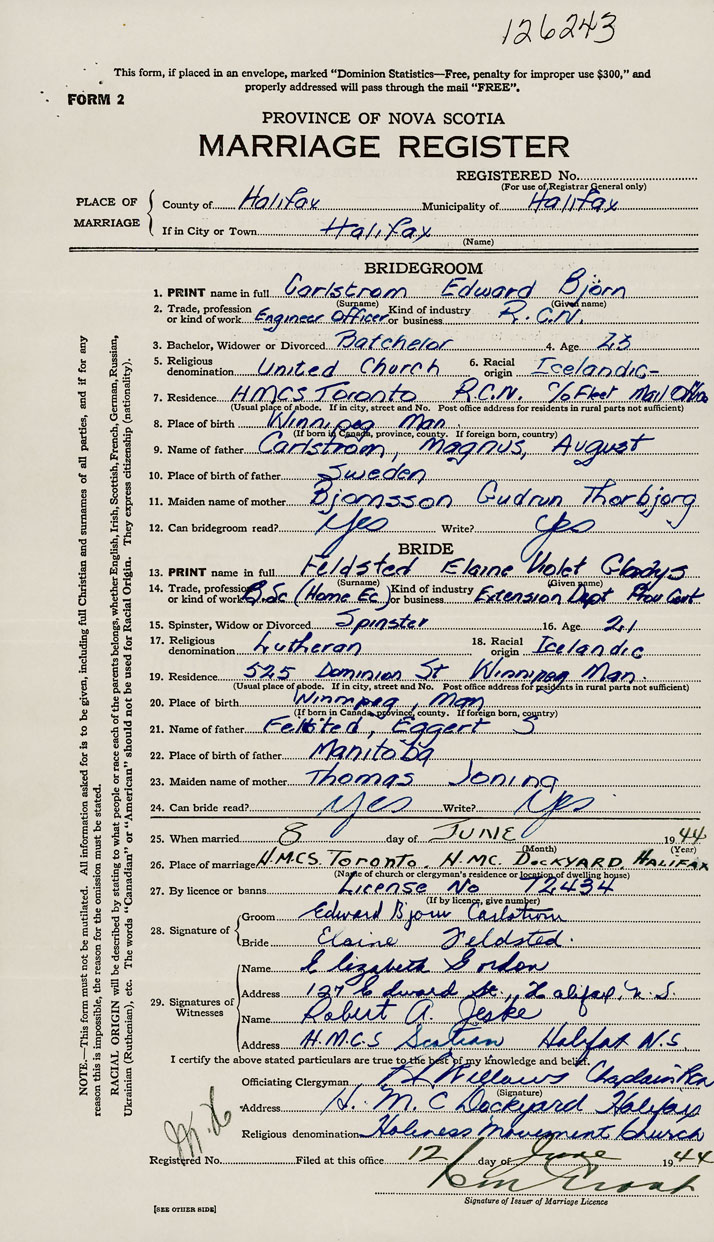 126243
This form, if placed in an envelope, marked "Dominion Statistics—Free, penalty for improper use $300," and
properly addressed will pass through the mail "FREE".
FORM 2
PROVINCE OF NOVA SCOTIA
MARRIAGE REGISTER
REGISTERED No.
(For use of Registrar General only)
PLACE OF MARRIAGE
County of Halifax Municipality of Halifax
If in City or Town Halifax
(Name)
BRIDEGROOM
1. PRINT name in full Carlstrom Edward Bjorn
(Surname) (Given name)
2. Trade, profession or kind of work Engineer Officer Kind of industry or business R.C.N.
3. Bachelor, Widower or Divorced Batchelor 4. Age 23
5. Religious denomination United Church 6. Racial origin Icelandic
7. Residence HMCS Toronto R.C.N. c/o Fleet Mail Office
(Usual place of abode. If in city, street and No. Post office address for residents in rural parts not sufficient)
8. Place of birth Winnipeg Man.
(If born in Canada, province, county. If foreign born, country)
9. Name of father Carlstrom, Magnus, August
10. Place of birth of father Sweden
11. Maiden name of mother Bjornsson Gudrun Thorbjorg
12. Can bridegroom read? Yes Write? Yes
BRIDE
13. PRINT name in full Feldsted Elaine Violet Gladys
(Surname) (Given name)
14. Trade, profession or kind of work B.Sc (Home Ec) Kind of industry or business Extension Dept Prov Govt
15. Spinster, Widow or Divorced Spinster 16. Age 21
17. Religious denomination Lutheran 18. Racial origin Icelandic
19. Residence 525 Dominion St Winnipeg Man.
(Usual place of abode. If in city, street and No. Post office address for residents in rural parts not sufficient)
20. Place of birth Winnipeg, Man
(If born in Canada, province, county. If foreign born, country)
21. Name of father Feldsted, Eggert S
22. Place of birth of father Manitoba
23. Maiden name of mother Thomas Jonina
24. Can bride read? Yes Write? Yes
25. When married 8 day of JUNE 1944
(Month) (Year)
26. Place of marriage H.M.C.S. Toronto. H.M.C. DOCKYARD, HALIFAX
(Name of church or clergyman's residence or location of dwelling house)
27. By licence or banns License No 72434
(If by licence, give number)
28. Signature of
Groom Edward Bjorn Carlstrom
Bride Elaine Feldsted.
29. Signatures of Witnesses
Name Elizabeth Gordon
Address 127 Edward St., Halifax, N.S.
Name Robert A. Jeske
Address H.M.C.S Scotian Halifax N.S
I certify the above stated particulars are true to the best of my knowledge and belief.
Officiating Clergyman Willows Chaplain
(Signature)
Address H. M. C Dockyard Halifax
Religious denomination Holiness Movement Church
Registered No. Filed at this office 12 day of June 1944
Signature of Issuer of Marriage Licence
[SEE OTHER SIDE]
NOTE.—This form must not be mutilated. All information asked for is to be given, including full Christian and surnames of all parties, and if for any
reason this is impossible, the reason for the omission must be stated.
RACIAL ORIGIN will be described by stating to what people or race each of the parents belongs, whether English, Irish, Scottish, French, German, Russian,
Ukrainian (Ruthenian), etc. The words "Canadian" or "American" should not be used for Racial Origin. They express citizenship (nationality).